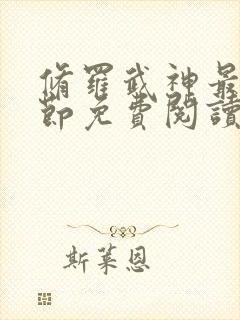 脩羅武神最
節免費閱讀
斯萊恩